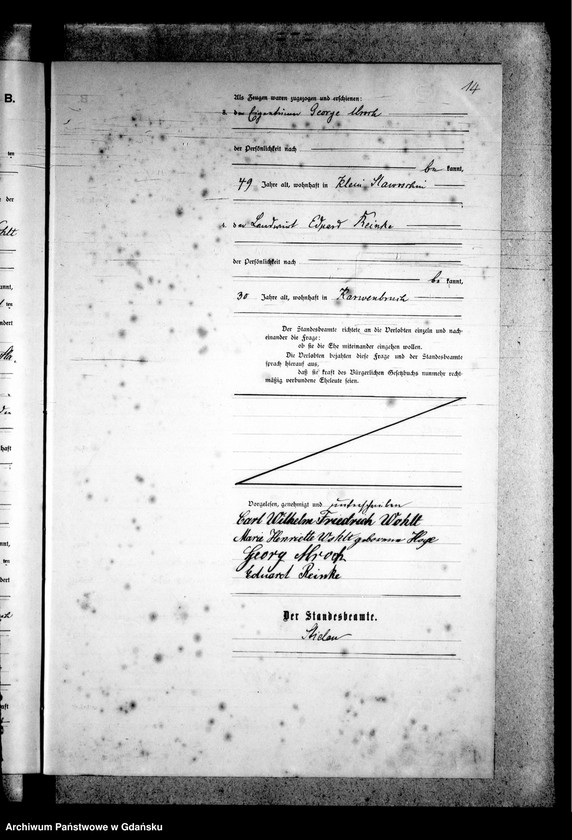 B.
14
Als Zeugen waren zugezogen und erschienen:
3. der Eigentümer George Mroch
der Persönlichkeit nach
be kannt,
49 Jahre alt, wohnhaft in Klein Starsin
4. der Landwirt Eduard Reinke
der Persönlichkeit nach
be kannt,
30 Jahre alt, wohnhaft in Karwenbruch
Der Standesbeamte richtete an die Verlobten einzeln und nach-
einander die Frage:
ob sie die Ehe miteinander eingehen wollen.
Die Verlobten bejahten diese Frage und der Standesbeamte
sprach hierauf aus,
daß sie kraft des Bürgerlichen Gesetzbuchs nunmehr recht-
mäßig verbundene Eheleute seien.
Vorgelesen, genehmigt und unterschrieben
Carl Wilhelm Friedrich Wohlt
Marie Henriette Wohlt geborene
Georg Mroch
Eduard Reinke
Der Standesbeamte.
Archiwum Państwowe w Gdańsku